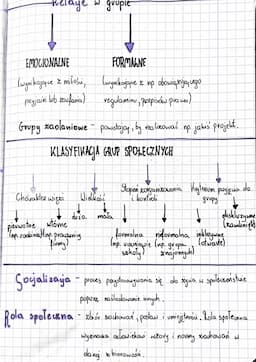 Relacje w grupie
EMOCJONALNE FORMALNE
(wynikające z miłości, (wynikające z np obowiązującego
przyjaźni lub zaufania) regulaminu, przepisów prawa)
Grupy zadaniowe - powstają, by realizować np. jakiś projekt.
KLASYFIKACJA GRUP SPOŁECZNYCH
Charakter więzi Wielkość Stopień i kontroli Kryterium przyjęcia do grupy
pierwotne (np. rodzina) wtórne (np. pracownicy firmy) duża mała formalna (np. szkoły) nieformalna (np. grupa znajomych) inkluzywne (otwarte) ekskluzywne (zamknięte)
Socjalizacja - proces przystosowywania się do życia w społeczeństwie
poprzez naśladowanie innych.
Rola społeczna - zbiór zachowań, postaw i umiejętności. Rola społeczna
wyznacza człowiekowi wzory i normy zachowań w
danej zbiorowości.